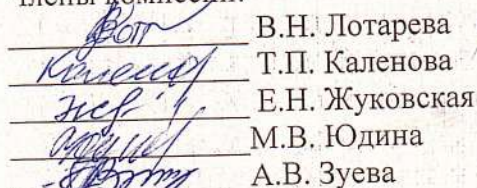 члены комиссии:
В.Н. Лотарева
Т.П. Каленова
Е.Н. Жуковская
М.В. Юдина
А.В. Зуева